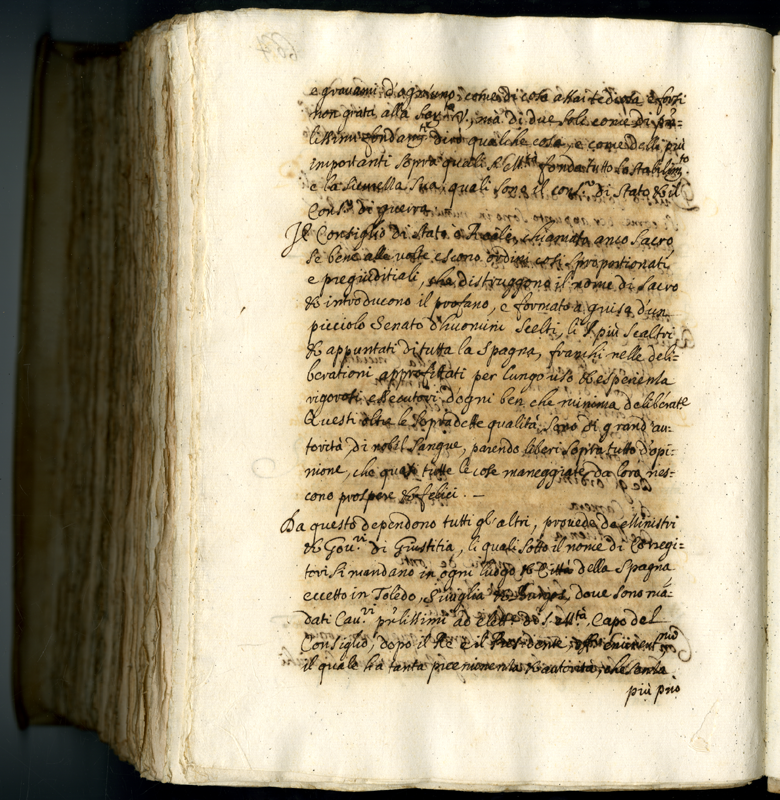 e gravami d'ogn'uno, come di cosa assai tediosa e forsi
non grata alla Ser.tà V., ma di due soli come di pñ=
lissimi et ondam.ti dirò qualche cosa, e come delli più
importanti sopra quali S. M.tà fonda tutto lo stabilim.to
e la sicurezza sua, quali sono il cons.o di Stato et il
Cons.o di guerra.
Il Consiglio di Stato o Reale, chiamato anco Sacro
se bene alle volte escono ordini così sproportionati
e pregiuditiali, che distruggono il nome di Sacro
et introducono il profano, e formato a guisa d'un
picciolo Senato d'huomini scelti, li più scaltri
et appuntati di tutta la Spagna, franchi nelle deli=
berationi approfittati per lungo uso et esperienza
rigorosi essecutori d'ogni ben che minima deliberat.e
Questi oltre le sopradette qualità, sono di grand'au=
torità, di nobil sangue, parendo liberi sopra tutto d'opi=
nione, che quasi tutte le cose maneggiate da loro ries=
cono prospere et felici. —
Da questo dependono tutti gl'altri, provede de Ministri
et Gov.ri di Giustitia, li quali sotto il nome di Corregi=
tori si mandano in ogni luogo et Città della Spagna
eccetto in Toledo, Siviglia et Burgos, dove sono mã=
dati Cav.ri pñlissimi ad elett.e di S. M.tà, Capo del
Consiglio, dopo il Rè è il Presidente
il quale hà tanta preeminenza et autorità, che senza
più pño